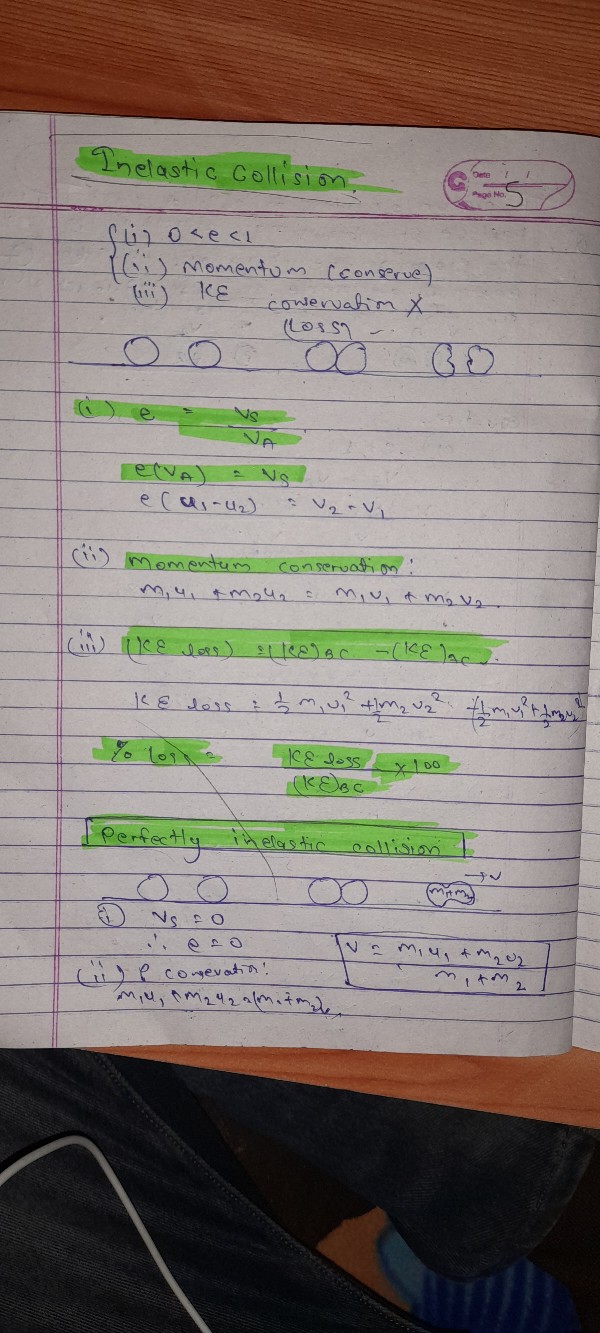 Inelastic Collision.
Date / /
Page No. 5
(i) 0 < e < 1
(ii) momentum (conserve)
(iii) KE conservation X
(Loss)
(i) e = vs / vA
e(vA) = vs
e(u1-u2) = v2-v1
(ii) momentum conservation:
m1u1 + m2u2 = m1v1 + m2v2.
(iii) (KE loss) = (KE)BC - (KE)
KE loss = 1/2 m1u1² + 1/2 m2u2² - (1/2 m1v1² + 1/2 m2v2²
% loss = KE loss / (KE)BC × 100
Perfectly inelastic collision
m1+m2 → v
(i) vs = 0
∴ e = 0
v = m1u1 + m2u2 / m1 + m2
(ii) P conservation:
m1u1 + m2u2 = (m1+m2)